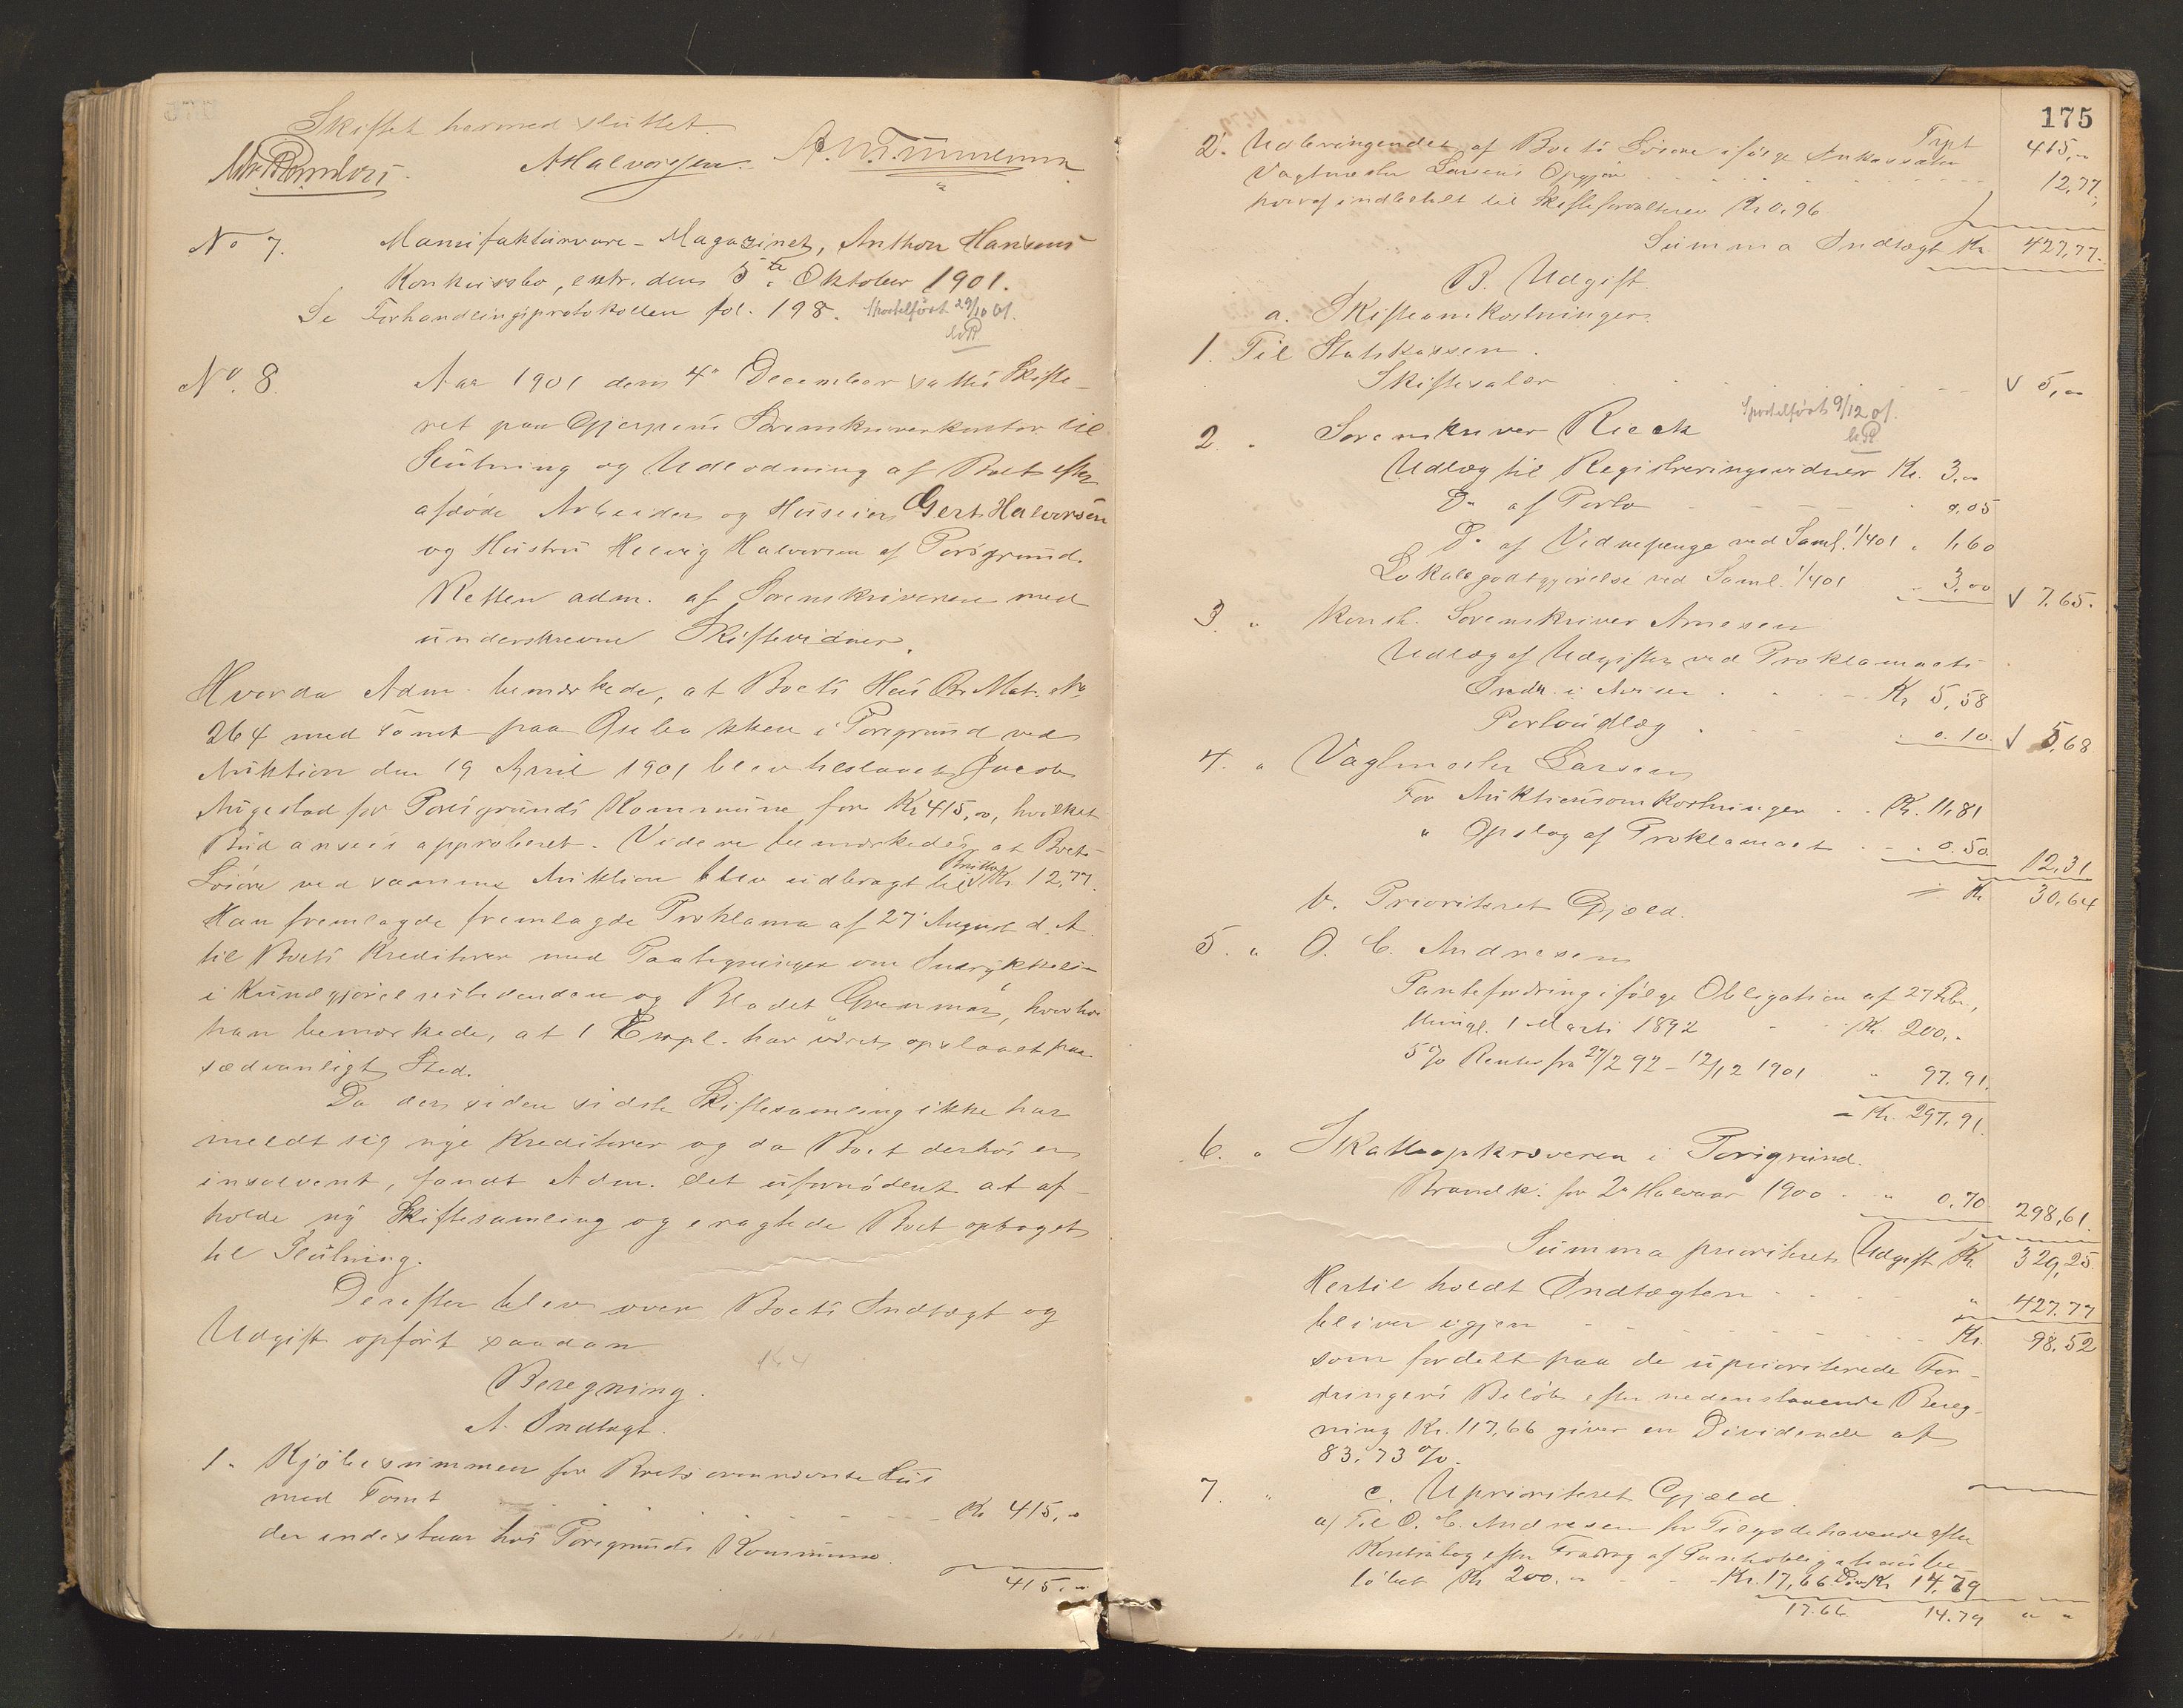 Skiftet hermed sluttet.
AHalvorsen.
No 7. Manufakturvare-Magazinet, Anthon Hansens
Konkursbo, extr. den 5te Oktober 1901.
Se Forhandlingsprotokollen fol. 198. Sportelført 29/10 01.
No. 8. Aar 1901 den 4de December sattes Skifte-
ret paa Gjerpens Sorenskriverkontor til
Slutning og Udlodning af Boet efter
afdøde Arbeider og Huseier Gert Halvorsen
og Hustru Helvig Halvorsen af Porsgrund.
Retten adm. af Sorenskriveren med
underskrevne Skiftevidner.
Hvorda Adm. bemærkede, at Boets Hus Br. Mat. No
264 med Tomt paa i Porsgrund ved
Auktion den 19 April 1901 blev tilslaaet Jacob
Augestad for Porsgrunds Kommune for Kr 415,00, hvilket
Bud ansees approberet. Videre bemærkedes, at Boets
Løsøre ved samme Auktion blev udbragt til Brutto Kr 12,77.
Han fremlagde fremlagde Proklama af 27 August d. A.
til Boets Kreditorer med Paategninger om Indrykkelse
i Kundgjørelsestidenden og Bladet "Grenmar", hvorhos
han bemærkede, at 1 Expl. har været opslaaet paa
sædvanligt Sted.
Da der siden sidste Skiftesamling ikke har
meldt sig nye Kreditorer og da Boet derhos er
insolvent, fandt Adm. det ufornødent at af-
holde ny Skiftesamling og eragtede Boet optaget
til Slutning.
Derefter blev over Boets Indtægt og
Udgift opført saadan
Beregning.
A. Indtægt.
1. Kjøbesummen for Boets ovennævnte Hus
med Tomt Kr 415,00
der indestaar hos Porsgrunds Kommune.
415,00
175
Tspt 415,00
2. Udbringendet af Boets Løsøre ifølge Inkassator
Vagtmester Larsens Opgjør 12,77,
hvoraf indbetalt til Skifteforvalteren Kr 0,96
Summa Indtægt Kr 427,77.
B. Udgift.
a. Skifteomkostninger.
1. Til Statskassen.
Skiftesalær V 5,00
Sportelført 9/12 01.
2 " Sorenskriver Rieck
Udlæg til Registreringsvidner Kr. 3,00
Do af Porto 0,05
Do af Vidnepenge ved Saml. 1/4 01 " 1,60
Lokalegodtgjørelse ved Saml. 1/4 01 3,00 V 7,65.
3. " Konst. Sorenskriver Arnesen
Udlæg af Udgifter ved Proklamaets
Indr. i Aviser Kr 5,58
Portoudlæg 0.10. V 5,68
4. " Vagtmester Larsen
For Auktionsomkostninger Kr. 11,81
" Opslag af Proklamaet 0.50. 12,31
= Kr 30,64
b. Prioriteret Gjæld.
5. " O. C. Andresen
Pantefordring ifølge Obligation af 27 Febr.,
thingl. 1 Marts 1892 Kr. 200,-
5% Renter fra 27/2 92 - 12/12 1901 " 97.91.
= Kr. 297,91.
6. " Skatteopkræveren i Porsgrund.
Brandk. for 2 Halvaar 1900 " 0,70 298,61.
Summa prioriteret Udgift Kr 329,25
Hertil holdt Indtægten " 427,77
bliver igjen Kr. 98.52
som fordelt paa de uprioriterede For-
dringers Beløb efter nedenstaaende Bereg-
ning Kr. 117,66 giver en Dividende af
83.73%.
7. " c. Uprioriteret Gjæld.
a) Til O. C. Andresen for Tilgodehavende efter
Kontrabog efter Fradrag af Panteobligationsbe-
løbet Kr 200,00 Kr. 17,66 Div. Kr 14,79
17.66 14.79 " "